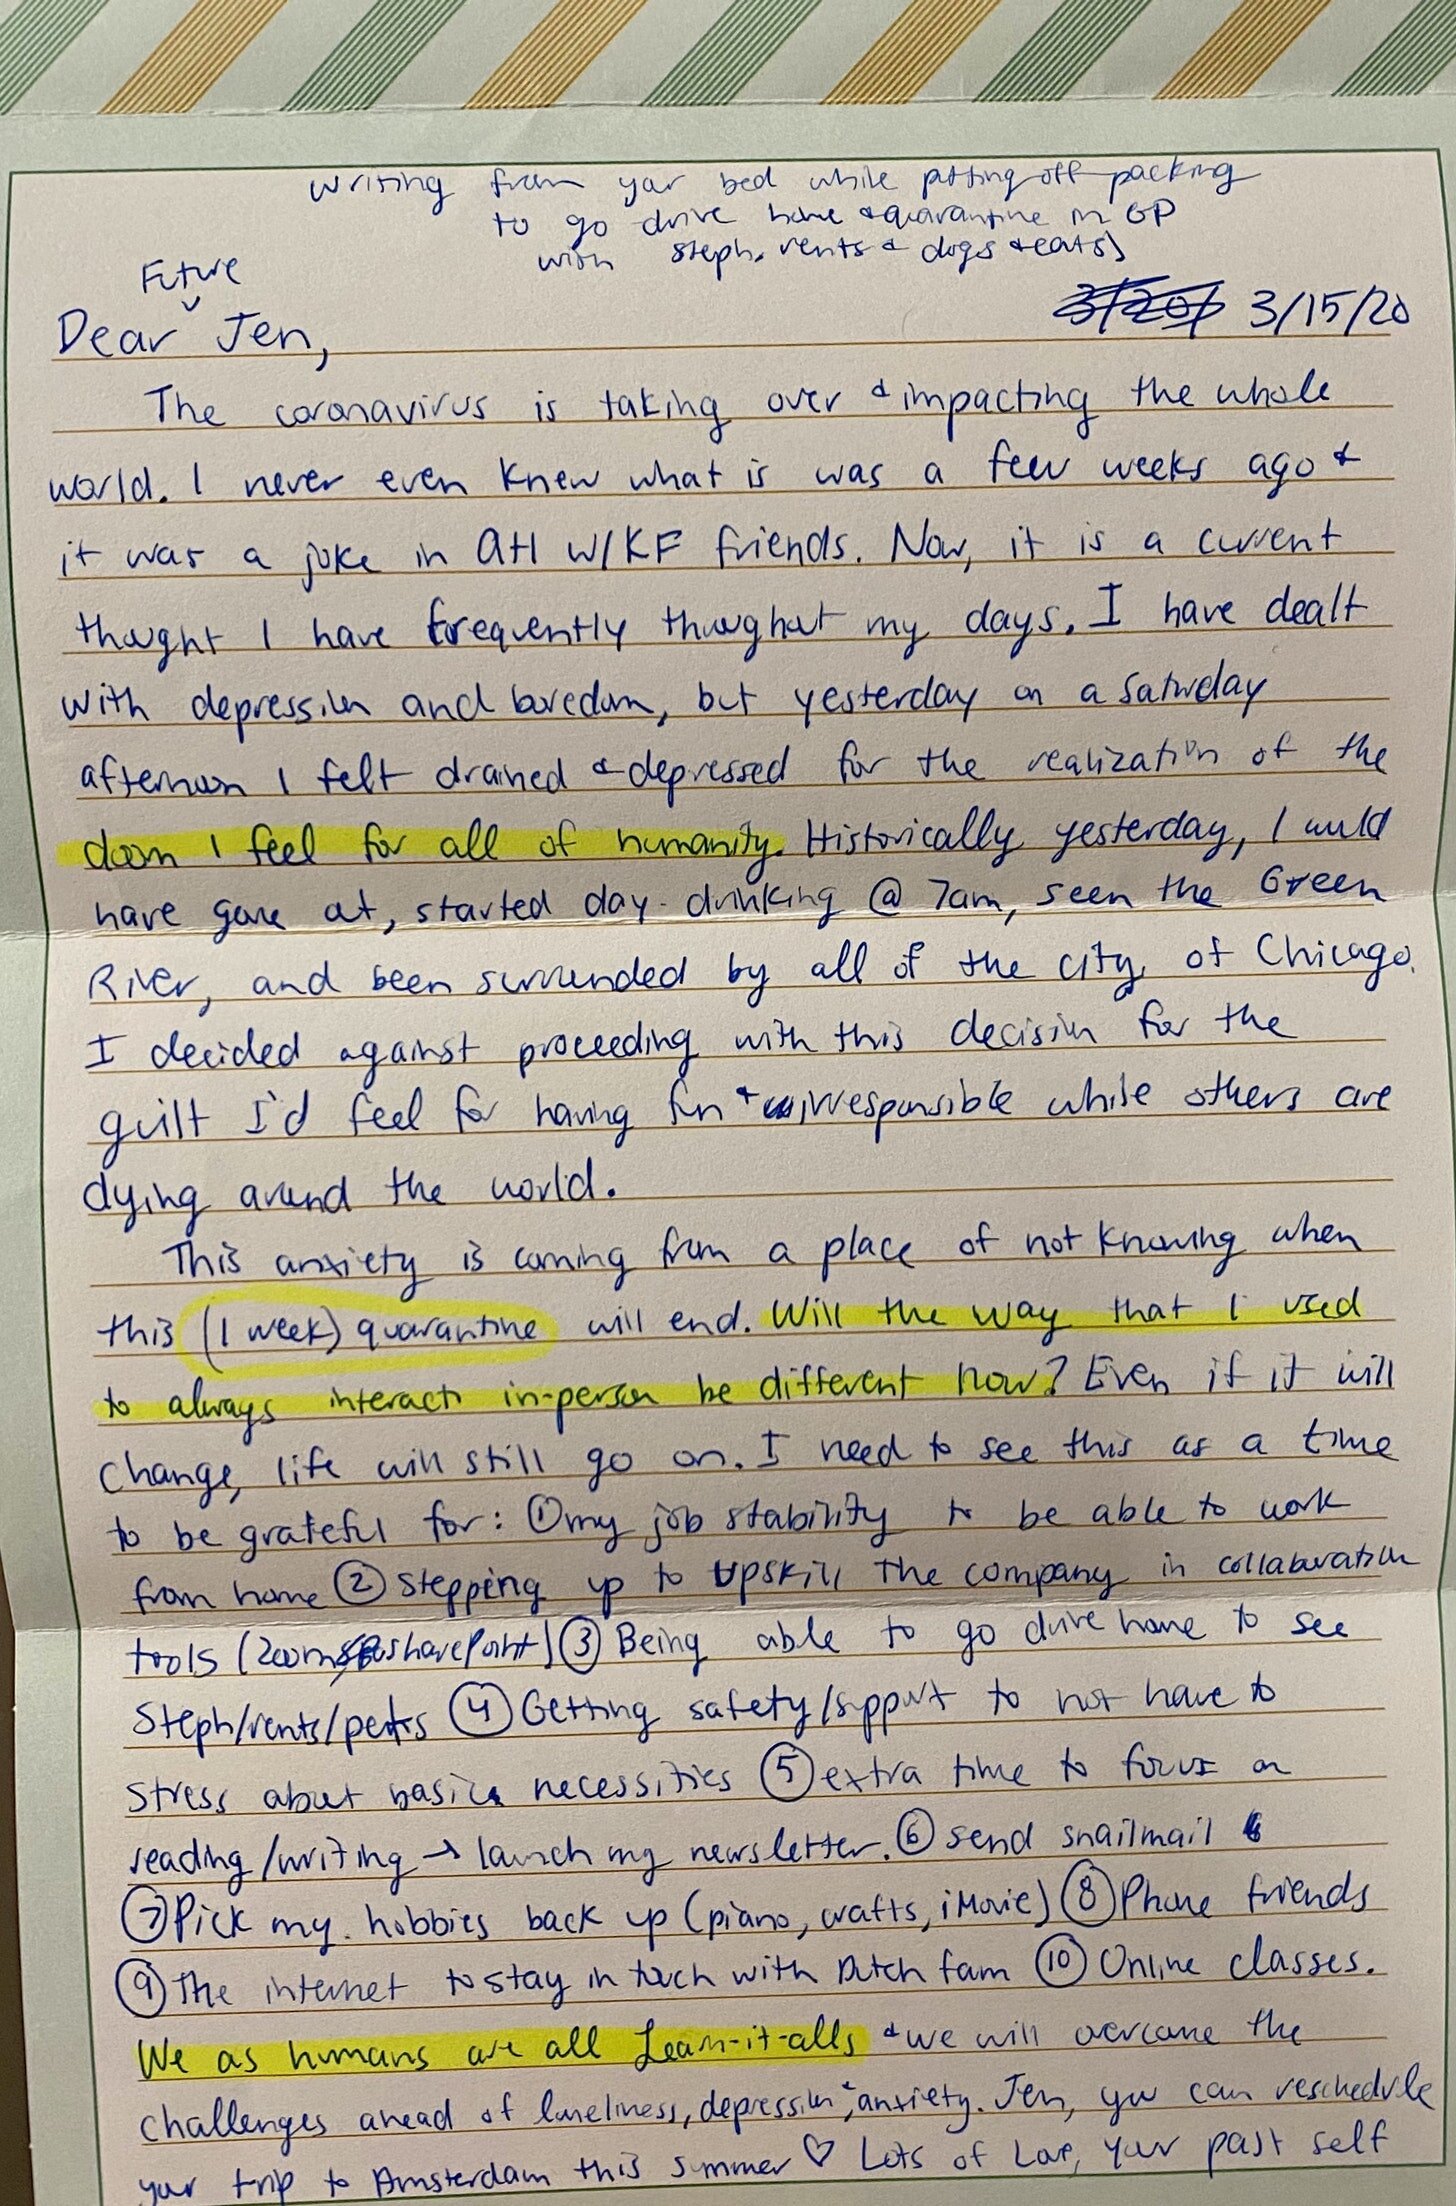 writing from your bed while putting off packing
to go drive home & quarantine in GP
with steph, rents & dogs & cats)
Future
Dear Jen,
3/15/20
The coronavirus is taking over & impacting the whole
world. I never even knew what is was a few weeks ago &
it was a joke in ATL w/KF friends. Now, it is a current
thought I have frequently throughout my days. I have dealt
with depression and boredom, but yesterday on a Saturday
afternoon I felt drained & depressed for the realization of the
doom I feel for all of humanity. Historically yesterday, I would
have gone out, started day-drinking @ 7am, seen the Green
River, and been surrounded by all of the city of Chicago.
I decided against proceeding with this decision for the
guilt I'd feel for having fun & irresponsible while others are
dying around the world.
This anxiety is coming from a place of not knowing when
this (1 week) quarantine will end. Will the way that I used
to always interact in-person be different now? Even if it will
change, life will still go on. I need to see this as a time
to be grateful for: ① my job stability to be able to work
from home ② stepping up to upskill the company in collaboration
tools (Zoom SharePoint) ③ Being able to go drive home to see
Steph/rents/pets ④ Getting safety/support to not have to
stress about basic necessities ⑤ extra time to focus on
reading/writing → launch my newsletter. ⑥ send snailmail
⑦ Pick my hobbies back up (piano, crafts, iMovie) ⑧ Phone friends
⑨ The internet to stay in touch with Dutch fam ⑩ Online classes.
We as humans are all Learn-it-alls & we will overcome the
challenges ahead of loneliness, depression, & anxiety. Jen, you can reschedule
your trip to Amsterdam this summer ♡ Lots of Love, your past self